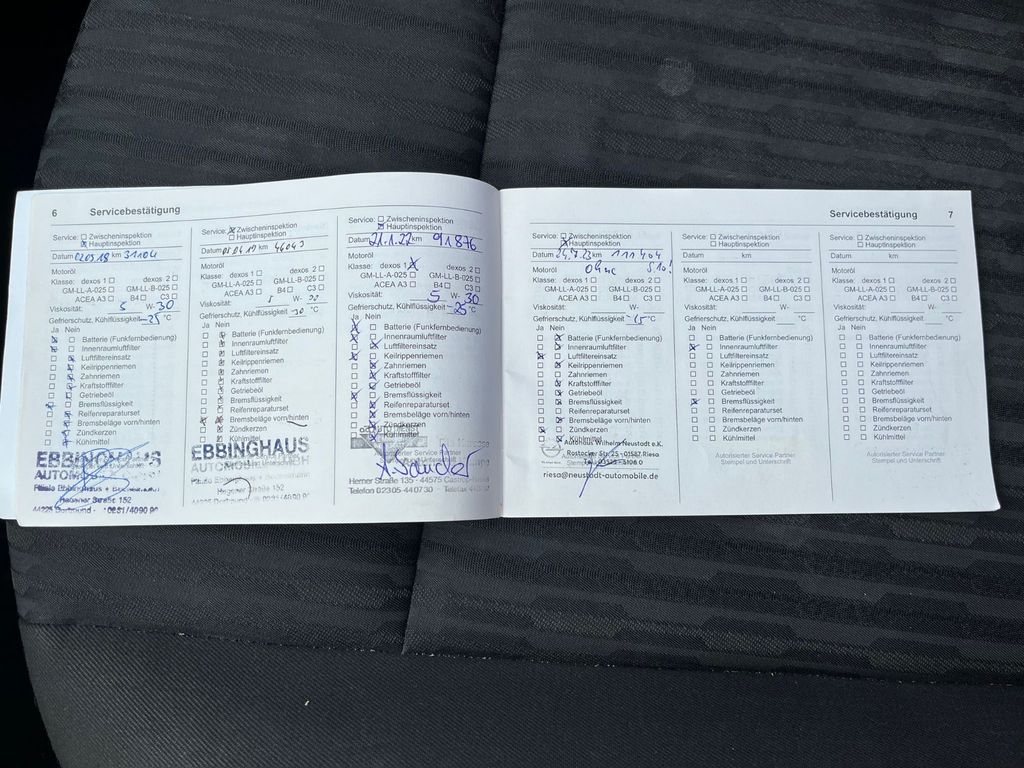 6 Servicebestätigung
Service: ☐ Zwischeninspektion
☒ Hauptinspektion
Datum 02.05.18 km 31104
Motoröl
Klasse: dexos 1 ☐ dexos 2 ☐
GM-LL-A-025 ☐ GM-LL-B-025 ☐
ACEA A3 ☐ B4 ☐ C3 ☐
Viskosität: 5 W- 30
Gefrierschutz, Kühlflüssigkeit -25 °C
Ja Nein
Batterie (Funkfernbedienung)
Innenraumluftfilter
Luftfiltereinsatz
Keilrippenriemen
Zahnriemen
Kraftstofffilter
Getriebeöl
Bremsflüssigkeit
Reifenreparaturset
Bremsbeläge vorn/hinten
Zündkerzen
Kühlmittel
EBBINGHAUS
AUTOMOBIL
Hagener Straße 152
44225 Dortmund - 0231/4090 90
Service: ☒ Zwischeninspektion
☐ Hauptinspektion
Datum km 46043
Motoröl
Klasse: dexos 1 ☐ dexos 2 ☐
GM-LL-A-025 ☐ GM-LL-B-025 ☐
ACEA A3 ☐ B4 ☐ C3 ☐
Viskosität: 5 W- 30
Gefrierschutz, Kühlflüssigkeit -30 °C
Ja Nein
Batterie (Funkfernbedienung)
Innenraumluftfilter
Luftfiltereinsatz
Keilrippenriemen
Zahnriemen
Kraftstofffilter
Getriebeöl
Bremsflüssigkeit
Reifenreparaturset
Bremsbeläge vorn/hinten
Zündkerzen
Kühlmittel
EBBINGHAUS
Hagener Straße 152
Service: ☐ Zwischeninspektion
☒ Hauptinspektion
Datum 21.1.22 km 91876
Motoröl
Klasse: dexos 1 ☒ dexos 2 ☐
GM-LL-A-025 ☐ GM-LL-B-025 ☐
ACEA A3 ☐ B4 ☐ C3 ☐
Viskosität: 5 W- 30
Gefrierschutz, Kühlflüssigkeit -25 °C
Ja Nein
Batterie (Funkfernbedienung)
Innenraumluftfilter
Luftfiltereinsatz
Keilrippenriemen
Zahnriemen
Kraftstofffilter
Getriebeöl
Bremsflüssigkeit
Reifenreparaturset
Bremsbeläge vorn/hinten
Zündkerzen
Kühlmittel
Herner Straße 135 - 44575 Castrop
Telefon 02305-440730 - Telefax
Servicebestätigung 7
Service: ☐ Zwischeninspektion
☒ Hauptinspektion
Datum 24.7.23 km 111404
Motoröl Ohne
Klasse: dexos 1 ☐ dexos 2 ☐
GM-LL-A-025 ☐ GM-LL-B-025 ☐
ACEA A3 ☐ B4 ☐ C3 ☐
Viskosität: W-
Gefrierschutz, Kühlflüssigkeit °C
Ja Nein
Batterie (Funkfernbedienung)
Innenraumluftfilter
Luftfiltereinsatz
Keilrippenriemen
Zahnriemen
Kraftstofffilter
Getriebeöl
Bremsflüssigkeit
Reifenreparaturset
Bremsbeläge vorn/hinten
Zündkerzen
Kühlmittel
Autohaus Wilhelm Neustadt e.K.
Rostocker Str. 25 - 01587 Riesa
riesa@neustadt-automobile.de
Service: ☐ Zwischeninspektion
☐ Hauptinspektion
Datum km
Motoröl
Klasse: dexos 1 ☐ dexos 2 ☐
GM-LL-A-025 ☐ GM-LL-B-025 ☐
ACEA A3 ☐ B4 ☐ C3 ☐
Viskosität: W-
Gefrierschutz, Kühlflüssigkeit °C
Ja Nein
Batterie (Funkfernbedienung)
Innenraumluftfilter
Luftfiltereinsatz
Keilrippenriemen
Zahnriemen
Kraftstofffilter
Getriebeöl
Bremsflüssigkeit
Reifenreparaturset
Bremsbeläge vorn/hinten
Zündkerzen
Kühlmittel
Autorisierter Service Partner
Stempel und Unterschrift
Service: ☐ Zwischeninspektion
☐ Hauptinspektion
Datum km
Motoröl
Klasse: dexos 1 ☐ dexos 2 ☐
GM-LL-A-025 ☐ GM-LL-B-025 ☐
ACEA A3 ☐ B4 ☐ C3 ☐
Viskosität: W-
Gefrierschutz, Kühlflüssigkeit °C
Ja Nein
Batterie (Funkfernbedienung)
Innenraumluftfilter
Luftfiltereinsatz
Keilrippenriemen
Zahnriemen
Kraftstofffilter
Getriebeöl
Bremsflüssigkeit
Reifenreparaturset
Bremsbeläge vorn/hinten
Zündkerzen
Kühlmittel
Autorisierter Service Partner
Stempel und Unterschrift